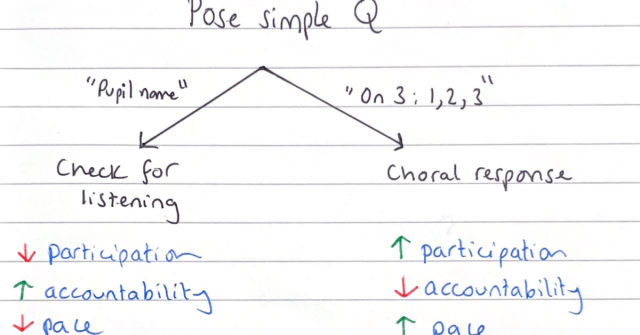 Pose simple Q
"Pupil name"
"On 3: 1, 2, 3"
Check for
listening
Choral response
↓ participation
↑ accountability
↓ pace
↑ participation
↓ accountability
↑ pace